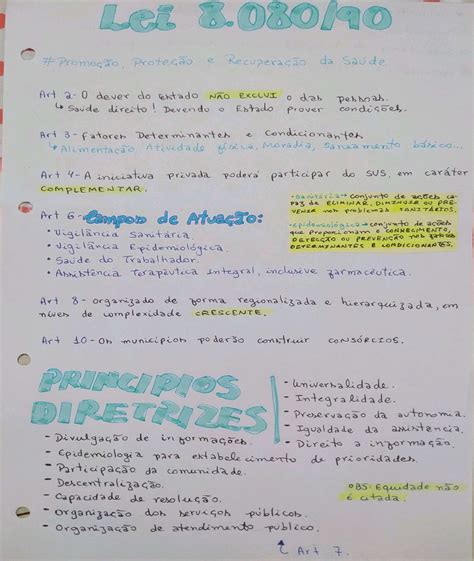 Lei 8.080/90
# Promoção, Proteção e Recuperação da Saúde
Art 2- O dever do Estado NÃO EXCLUI o das pessoas.
↳ Saúde direito! Devendo o Estado prover condições.
Art 3- Fatores Determinantes e Condicionantes
↳ Alimentação, Atividade física, Moradia, Saneamento básico...
Art 4- A iniciativa privada poderá participar do SUS, em caráter
COMPLEMENTAR.
• Sanitária → conjunto de ações ca
paz de ELIMINAR, DIMINUIR OU PRE-
VENIR nos problemas SANITÁRIOS.
• epidemiológica → conjunto de ações
que proporcionam o CONHECIMENTO,
DETECÇÃO OU PREVENÇÃO nos fatores
DETERMINANTES E CONDICIONANTES.
Art 6- Campos de Atuação:
• Vigilância Sanitária.
• Vigilância Epidemiológica
• Saúde do Trabalhador.
• Assistência Terapêutica Integral, inclusive farmacêutica.
Art 8- organizado de forma regionalizada e hierarquizada, em
níveis de complexidade CRESCENTE.
Art 10- Os municípios poderão construir CONSÓRCIOS.
PRINCIPIOS
DIRETRIZES
- Universalidade.
- Integralidade.
- Preservação da autonomia.
- Igualdade da assistência.
- Direito a informação.
- Divulgação de informações.
- Epidemiologia para estabelecimento de prioridades.
- Participação da comunidade.
- Descentralização.
- Capacidade de resolução.
- Organização dos serviços públicos.
- Organização de atendimento público.
OBS: Equidade não
é citada.
↑ Art 7.